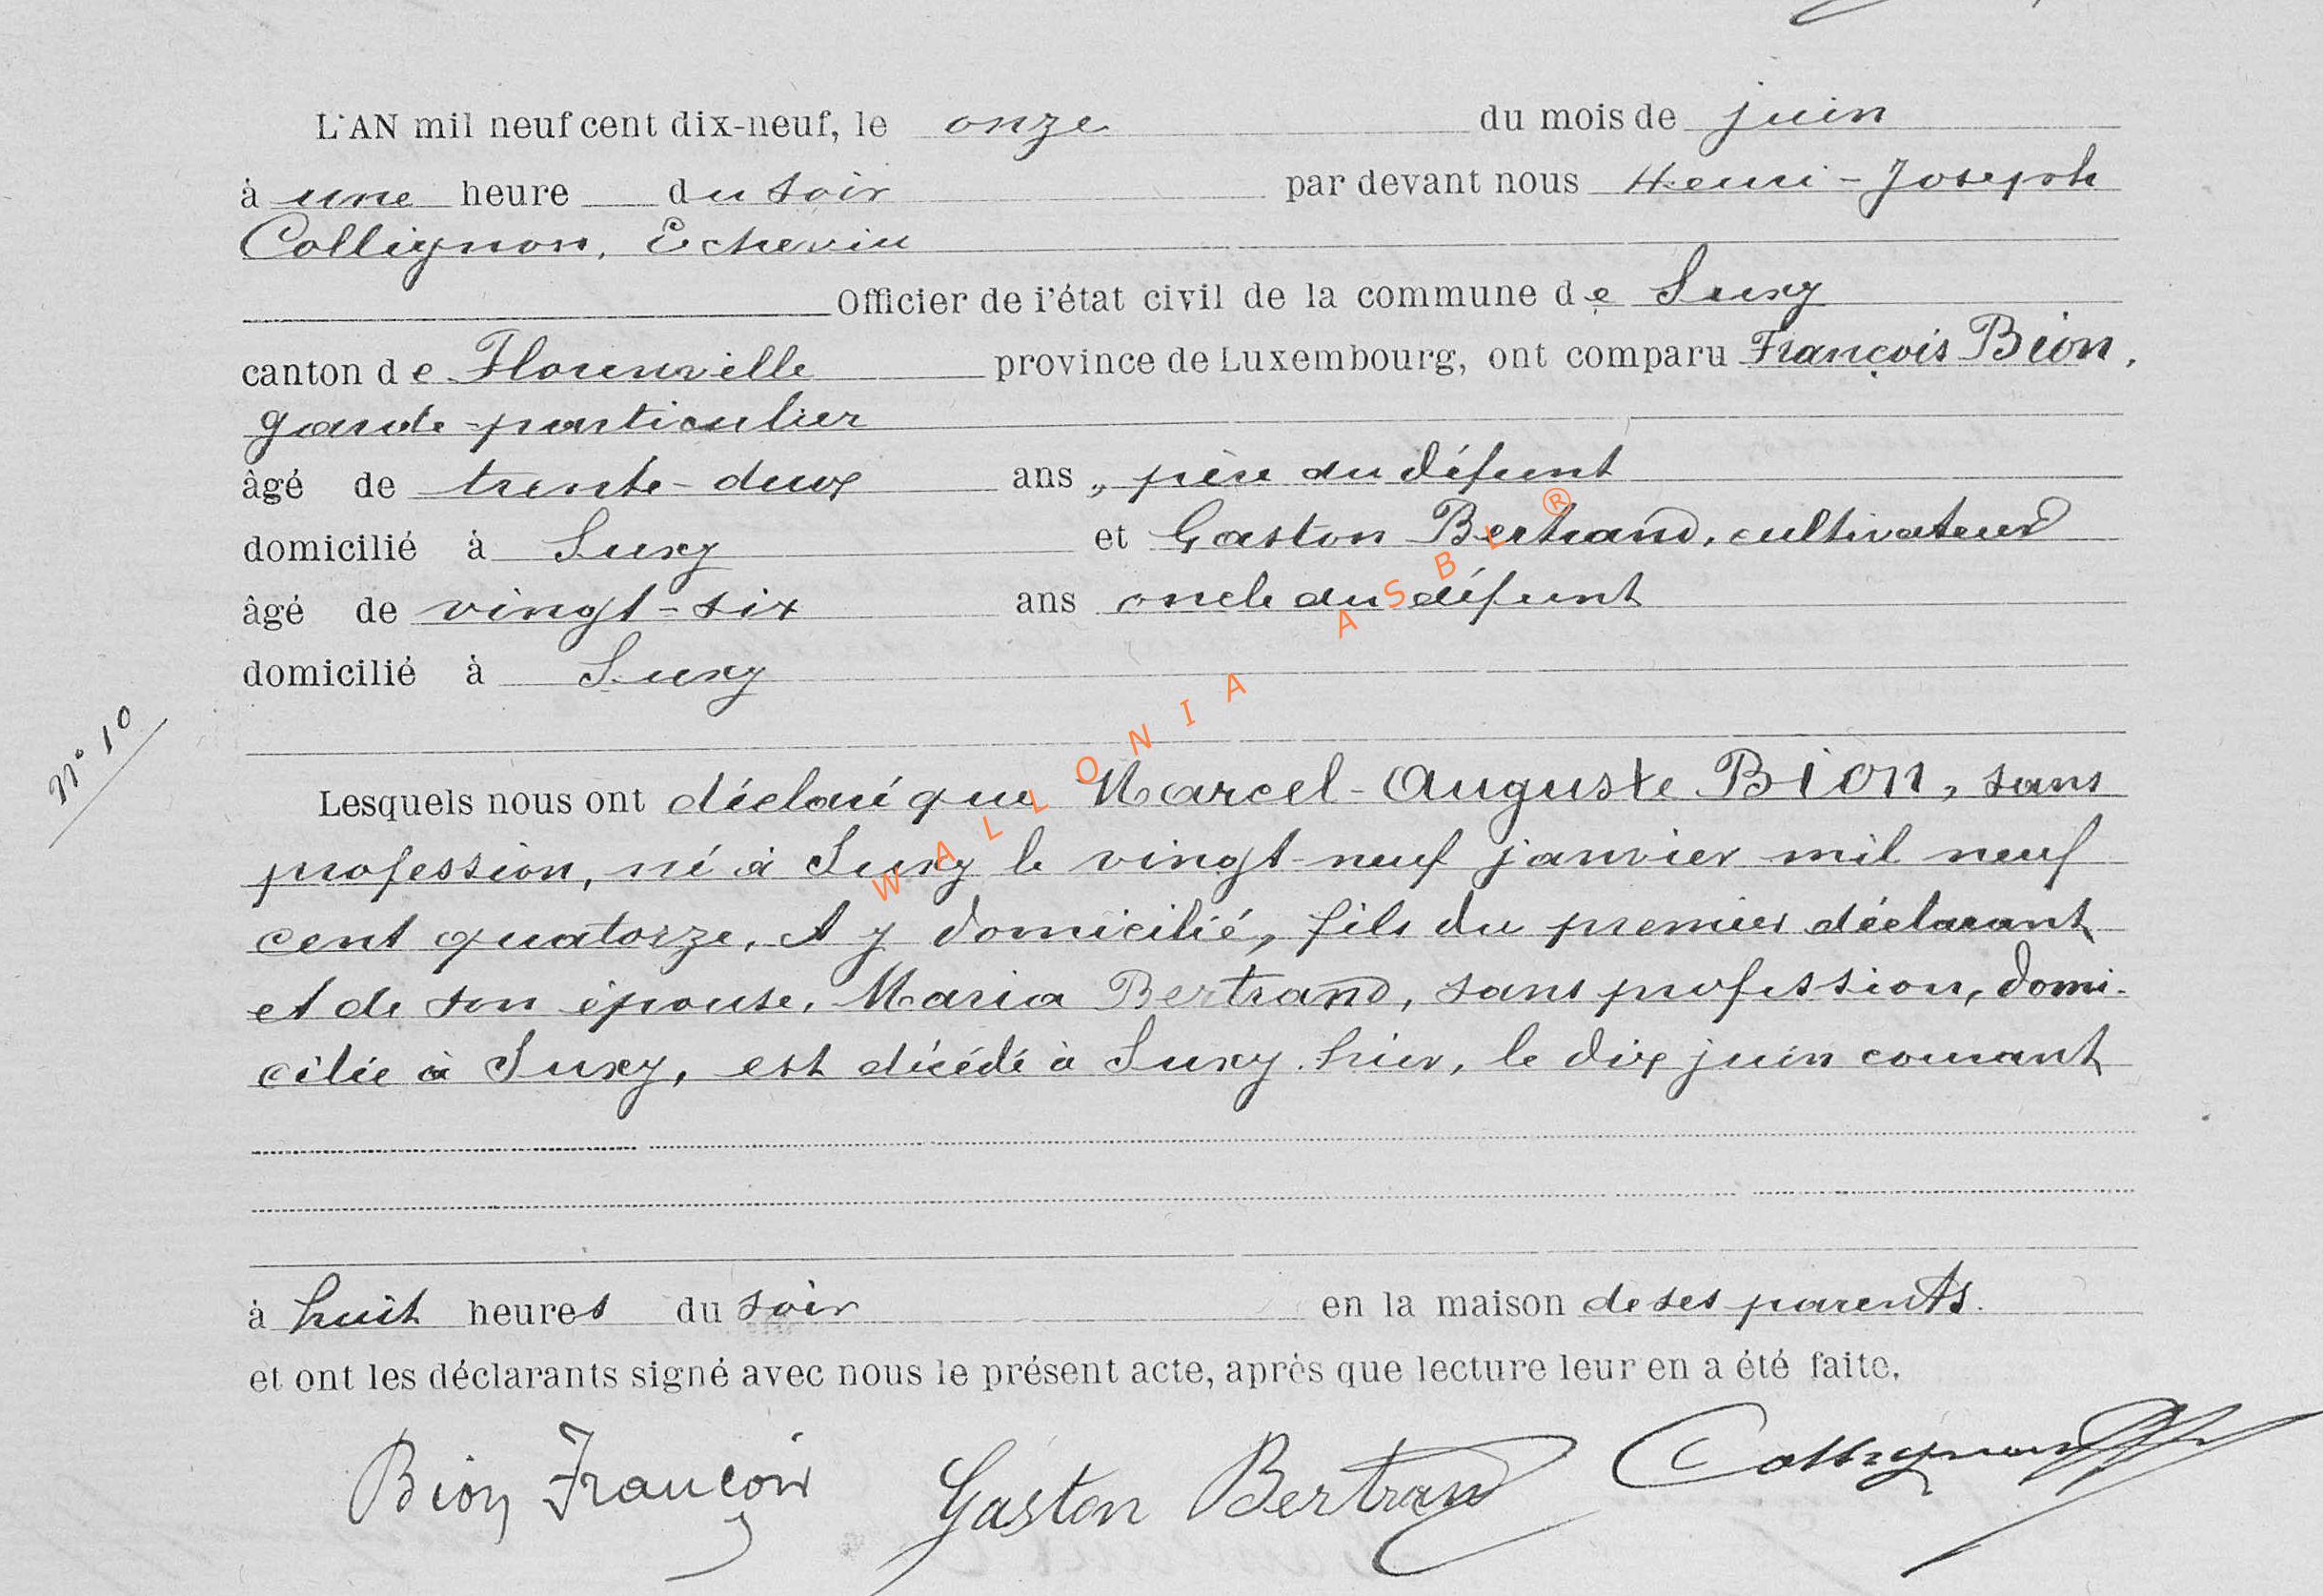 L'AN mil neuf cent dix-neuf, le onze du mois de juin
à une heure du soir par devant nous Henri-Joseph
Collignon, Echevin
Officier de l'état civil de la commune de Suxy
canton de Florenville province de Luxembourg, ont comparu François Bion,
garde-particulier
âgé de trente-deux ans, père du défunt
domicilié à Suxy et Gaston Bertrand, cultivateur
âgé de vingt-six ans oncle du défunt
domicilié à Suxy
N° 10
Lesquels nous ont déclaré que Marcel-Auguste Bion, sans
profession, né à Suxy le vingt-neuf janvier mil neuf
cent quatorze, et y domicilié, fils du premier déclarant
et de son épouse, Maria Bertrand, sans profession, domi-
ciliée à Suxy, est décédé à Suxy hier, le dix juin courant
à huit heures du soir en la maison de ses parents.
et ont les déclarants signé avec nous le présent acte, après que lecture leur en a été faite.
Bion François Gaston Bertrand Collignon
WALLONIA ASBL ®